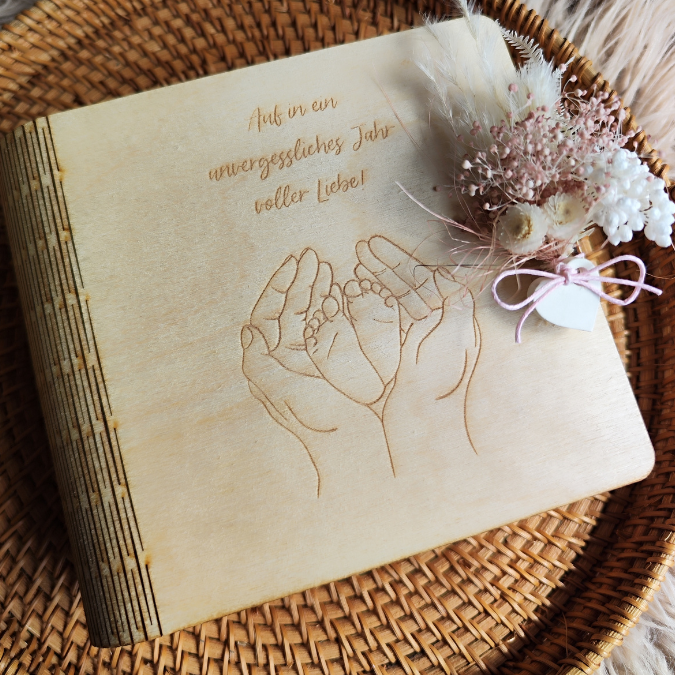 Auf in ein
unvergessliches Jahr
voller Liebe!